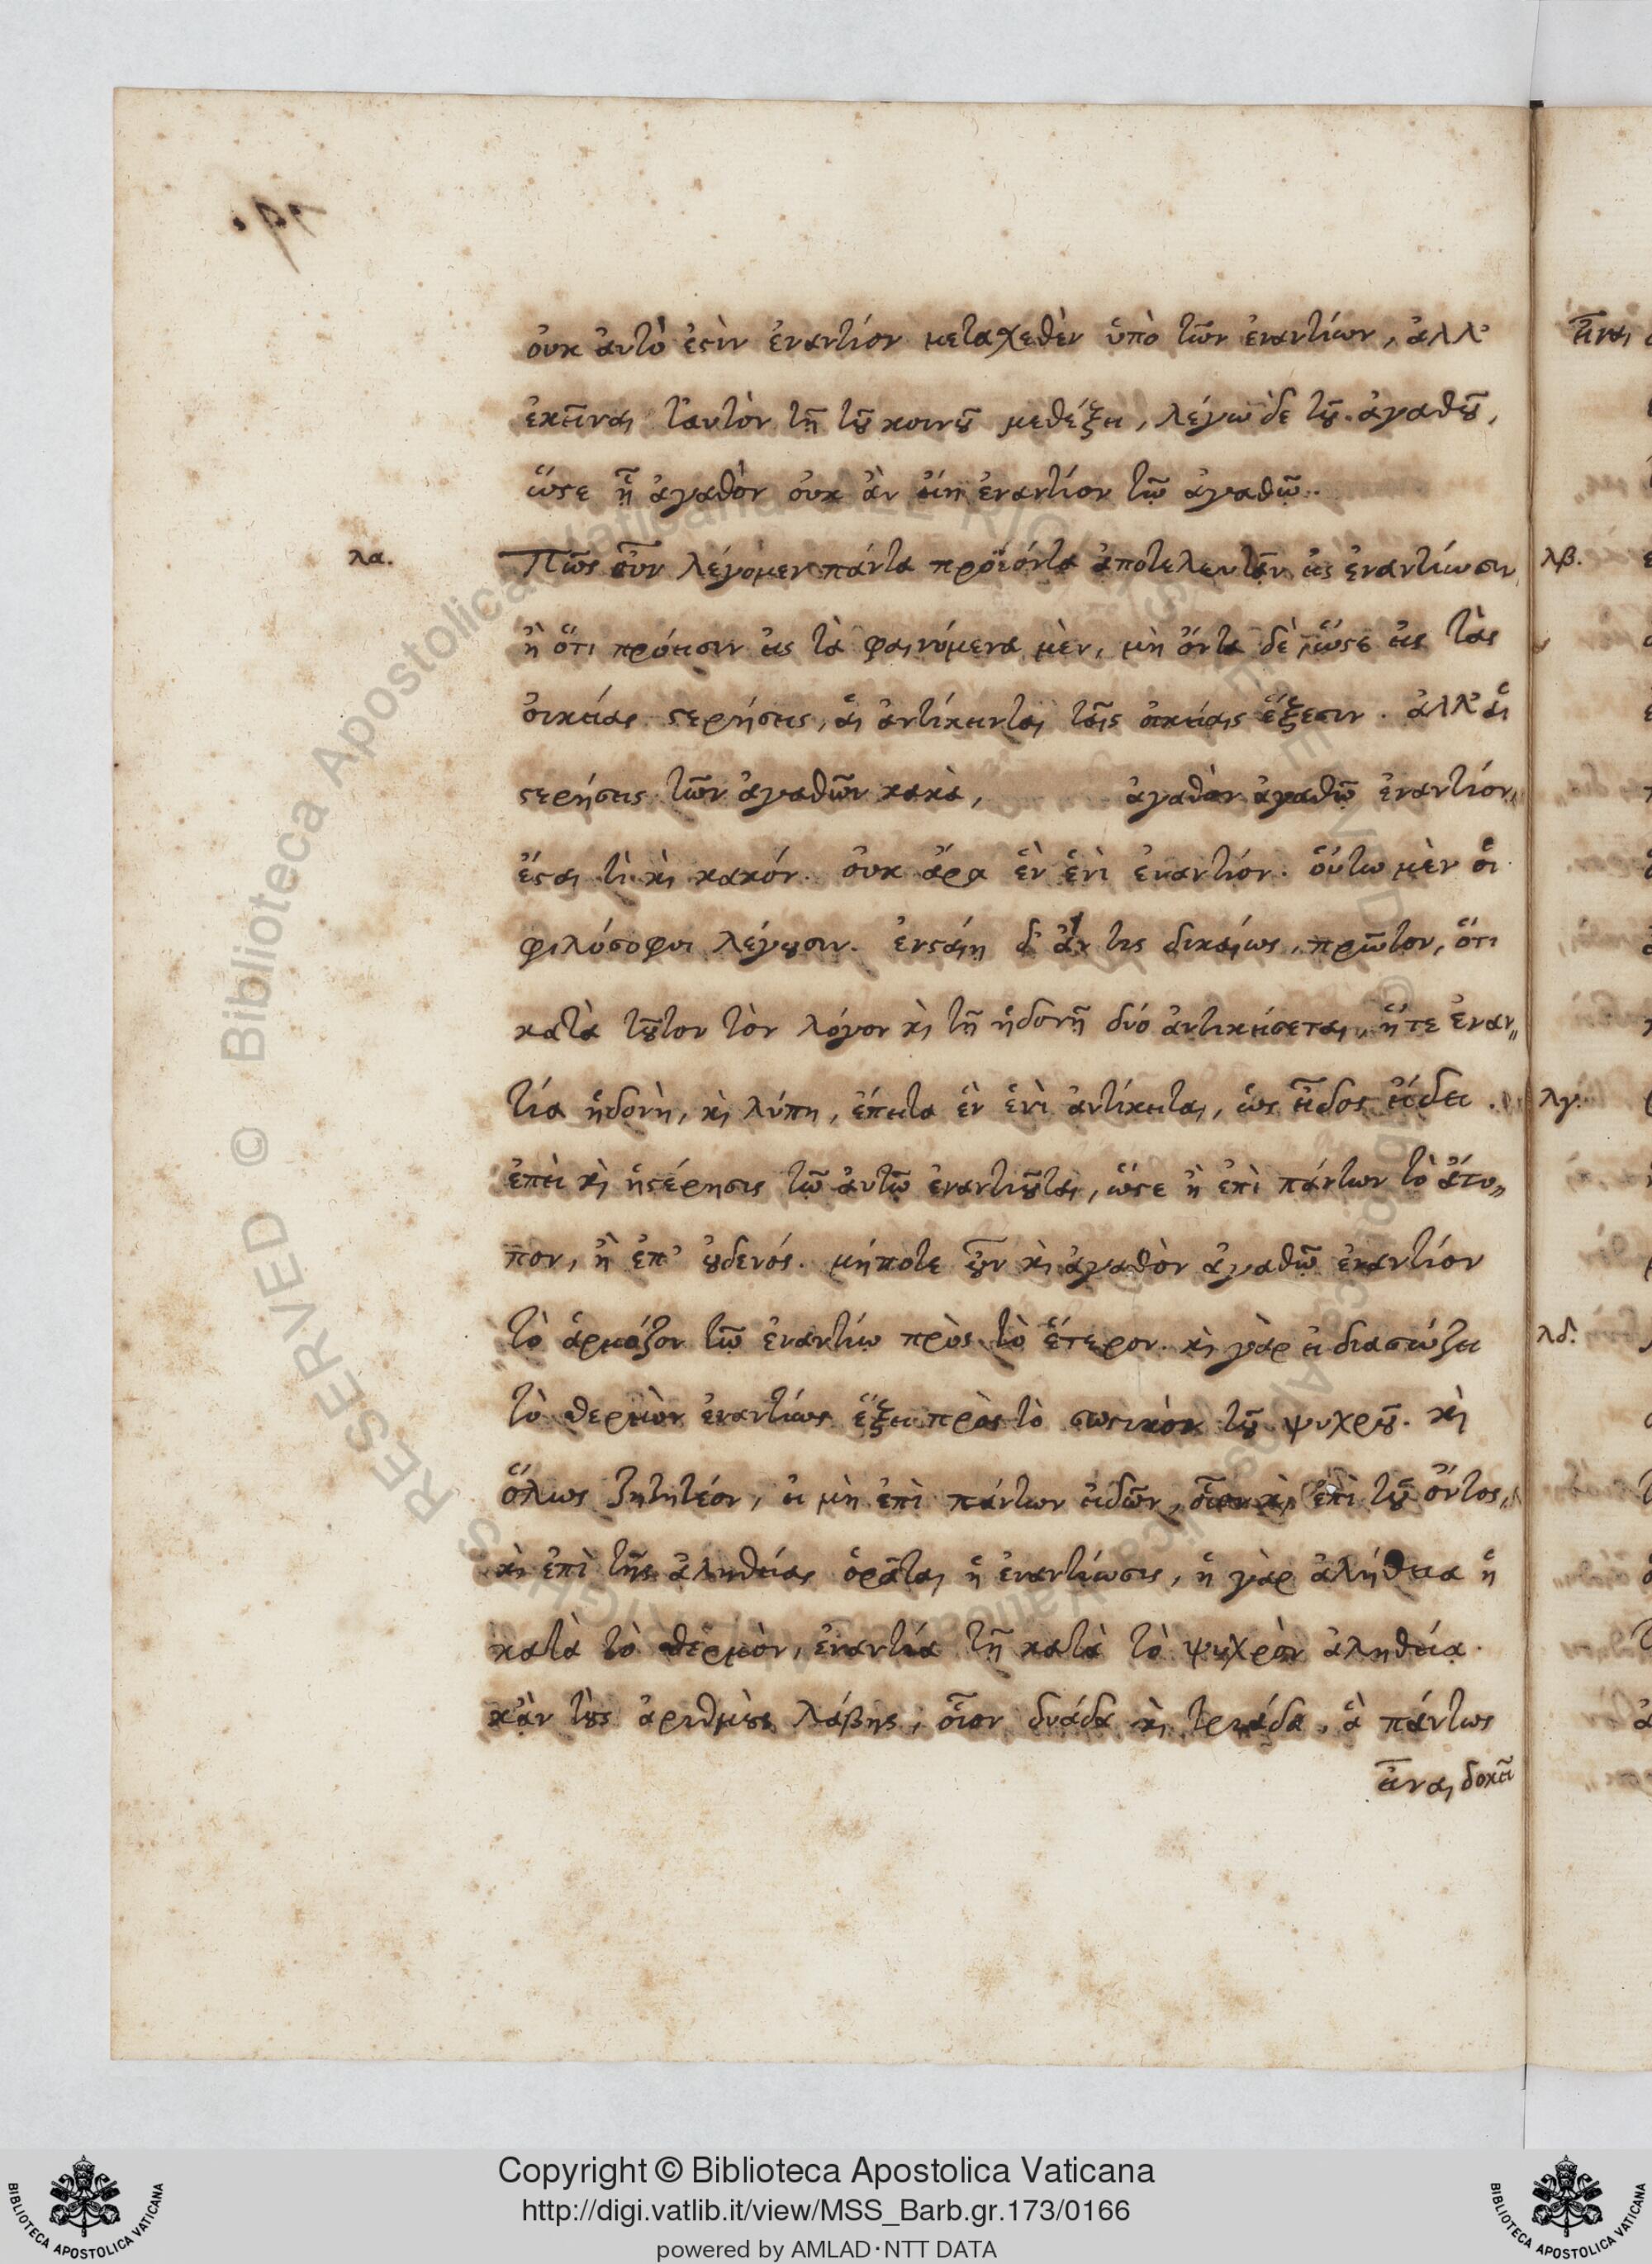 οὐκ αὐτὸ ἐστὶν ἐναντίον μετασχεθὲν ὑπὸ τῶν ἐναντίων, ἀλλ'
ἐκεῖναι ταυτὸν τῇ τοῦ κοινοῦ μεθέξει, λέγω δὲ τοῦ ἀγαθοῦ,
ὥστε ᾗ ἀγαθὸν οὐκ ἂν εἴη ἐναντίον τῷ ἀγαθῷ.
λα. Πῶς οὖν λέγομεν πάντα προϊόντα ἀποτελευτᾶν εἰς ἐναντίωσιν
ἢ ὅτι πρόεισιν εἰς τὰ φαινόμενα μὲν, μὴ ὄντα δὲ, ὥστε εἰς τὰς
οἰκείας στερήσεις, αἳ ἀντίκεινται ταῖς οἰκείαις ἕξεσιν. ἀλλ' αἱ
στερήσεις τῶν ἀγαθῶν κακὰ, ἀγαθὸν ἀγαθῷ ἐναντίον,
ἔσται τὶ καὶ κακόν. οὐκ ἄρα ἓν ἑνὶ ἐναντίον. οὕτω μὲν οἱ
φιλόσοφοι λέγουσιν. ἐνσταίη δ' ἄν τις δικαίως, πρῶτον, ὅτι
κατὰ τοῦτον τὸν λόγον καὶ τῇ ἡδονῇ δύο ἀντικείσεται, ἥ τε ἐναν„
τία ἡδονὴ, καὶ λύπη, ἔπειτα ἓν ἑνὶ ἀντίκειται, ὡς εἶδος εἴδει.
ἐπεὶ καὶ ἡ στέρησις τῷ αὐτῷ ἐναντιοῦται, ὥστε ἢ ἐπὶ πάντων τὸ ἄτο„
πον, ἢ ἐπ' οὐδενός. μήποτε οὖν καὶ ἀγαθὸν ἀγαθῷ ἐναντίον
τὸ ἁρμόζον τῷ ἐναντίῳ πρὸς τὸ ἕτερον. καὶ γὰρ εἰ διασώζει
τὸ θερμὸν ἐναντίως ἕξει πρὸς τὸ σωστικὸν τοῦ ψυχροῦ. καὶ
ὅλως ζητητέον, εἰ μὴ ἐπὶ πάντων εἰδῶν, οἷον καὶ ἐπὶ τοῦ ὄντος,
καὶ ἐπὶ τῆς ἀληθείας ὁρᾶται ἡ ἐναντίωσις, ἡ γὰρ ἀλήθεια ἡ
κατὰ τὸ θερμὸν, ἐναντία τῇ κατὰ τὸ ψυχρὸν ἀληθείᾳ.
κἂν τοὺς ἀριθμοὺς λάβῃς, οἷον δυάδα καὶ τριάδα, ἃ πάντως
εἶναι δοκεῖ
λβ.
λγ.
λδ.
Copyright © Biblioteca Apostolica Vaticana
http://digi.vatlib.it/view/MSS_Barb.gr.173/0166
powered by AMLAD·NTT DATA
BIBLIOTECA APOSTOLICA VATICANA
BIBLIOTECA APOSTOLICA VATICANA